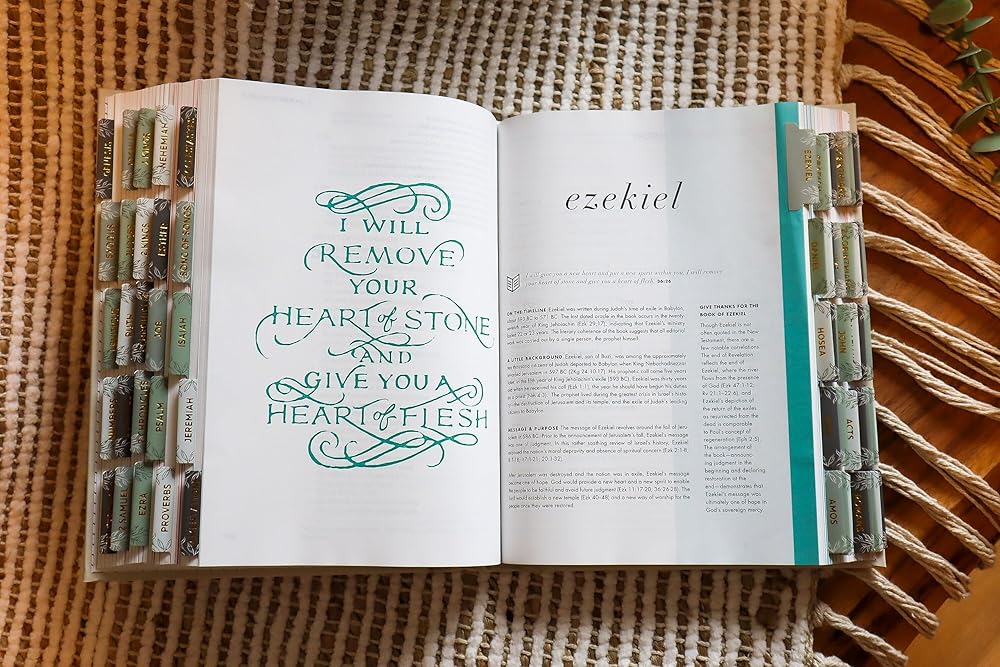 NEHEMIAH
EXODUS
2 KINGS
ESTHER
SONG OF SONGS
JOB
ISAIAH
NUMBERS
PSALM
JEREMIAH
2 SAMUEL
EZRA
PROVERBS
I WILL
REMOVE
YOUR
HEART of STONE
AND
GIVE YOU A
HEART of FLESH
ezekiel
I will give you a new heart and put a new spirit within you. I will remove
your heart of stone and give you a heart of flesh. 36:26
ON THE TIMELINE Ezekiel was written during Judah's time of exile in Babylon,
about 593 BC to 571 BC. The last dated oracle in the book occurs in the twenty-
seventh year of King Jehoiachin (Ezk 29:17), indicating that Ezekiel's ministry
lasted 22 or 23 years. The literary coherence of the book suggests that all editorial
work was carried out by a single person, the prophet himself.
A LITTLE BACKGROUND Ezekiel, son of Buzi, was among the approximately
ten thousand citizens of Judah deported to Babylon when King Nebuchadnezzar
invaded Jerusalem in 597 BC (2Kg 24:10-17). His prophetic call came five years
later, in the fifth year of King Jehoiachin's exile (593 BC). Ezekiel was thirty years
old when he received his call (Ezk 1:1), the year he should have begun his duties
as a priest (Nm 4:3). The prophet lived during the greatest crisis in Israel's history—
the destruction of Jerusalem and its temple, and the exile of Judah's leading
citizens to Babylon.
MESSAGE & PURPOSE The message of Ezekiel revolves around the fall of Jeru-
salem in 586 BC. Prior to the announcement of Jerusalem's fall, Ezekiel's message
was one of judgment. In this rather scathing review of Israel's history, Ezekiel
exposed the nation's moral depravity and absence of spiritual concern (Ezk 2:1-8;
After Jerusalem was destroyed and the nation was in exile, Ezekiel's message
became one of hope. God would provide a new heart and a new spirit to enable
the people to be faithful and avoid future judgment (Ezk 11:17-20; 36:26-28). The
Lord would establish a new temple (Ezk 40–48) and a new way of worship for the
people once they were restored.
GIVE THANKS FOR THE
BOOK OF EZEKIEL
Though Ezekiel is not
often quoted in the New
Testament, there are a
few notable correlations.
The end of Revelation
reflects the end of
Ezekiel, where the river
flows from the presence
of God (Ezk 47:1-12;
Rv 21:1–22:6), and
Ezekiel's depiction of
the return of the exiles
as resurrected from the
dead is comparable
to Paul's concept of
regeneration (Eph 2:5).
The arrangement
of the book—announc-
ing judgment in the
beginning and declaring
restoration at the
end—demonstrates that
Ezekiel's message was
ultimately one of hope in
God's sovereign mercy.
EZEKIEL
DANIEL
HOSEA
JOHN
ACTS
AMOS
ROMANS